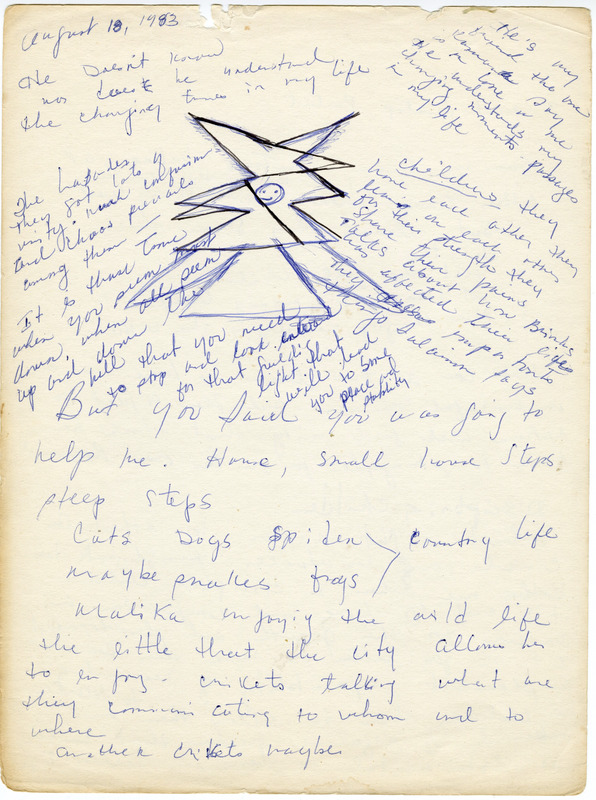 August 18, 1983
He Doesn't know
nor does he understand
the changing times in my life
He's my
friend the one
in love
He understands my
changing moments passages
in my life
The
they got lots of
unity. much confusion
and chaos prevails
among them —
It is those time
when you seem most
down, when all seem
up and down the
hill that you need
to stop and look
for that guiding
light that
will lead
you to some
peace and
stability
Children, they
love each other they
on each other
for their strength they
share their pains
talks about how Drinks
has affected their lifes
They
Suleman says
But you said you was going to
help me. House, small house steps
steep steps
Cats Dogs Spider country life
maybe snakes frogs
Malika enjoyiy the wild life
the little that the city allows her
to enjoy - crikets talking what are
they communicating to whom and to
where
another crikets maybe